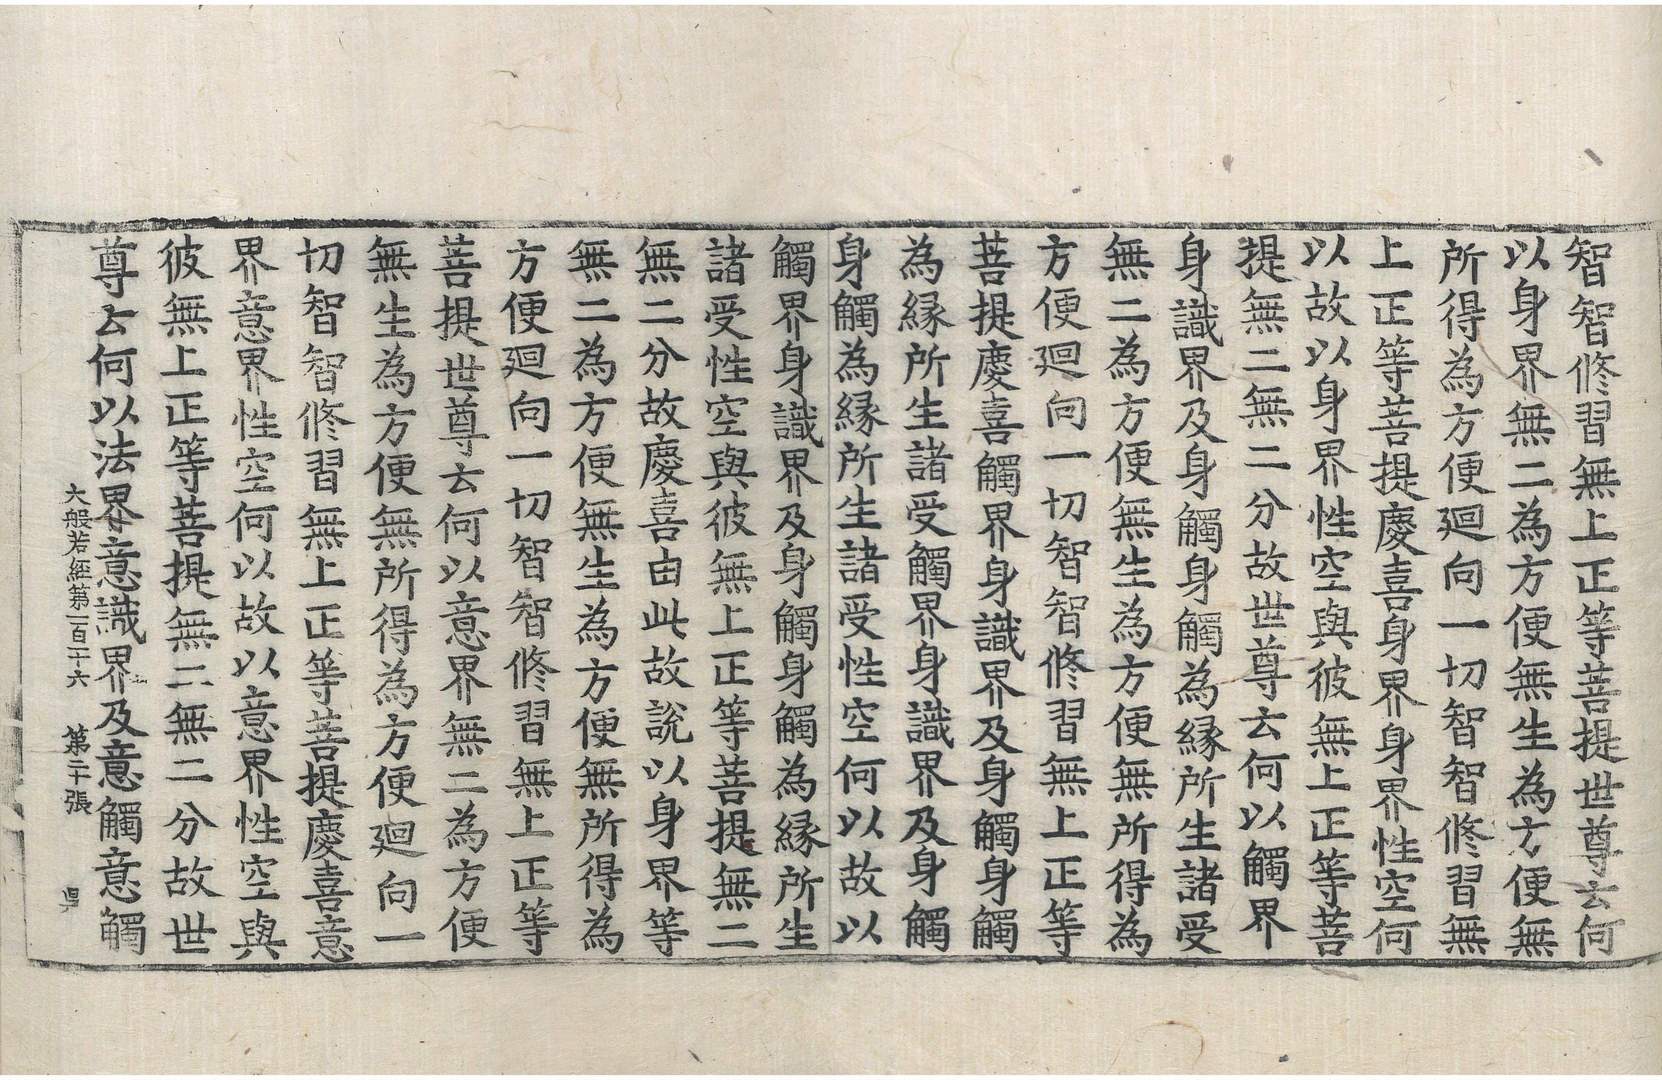 智智修習無上正等菩提世尊云何
以身界無二為方便無生為方便無
所得為方便廻向一切智智修習無
上正等菩提慶喜身界身界性空何
以故以身界性空與彼無上正等菩
提無二無二分故世尊云何以觸界
身識界及身觸身觸為縁所生諸受
無二為方便無生為方便無所得為
方便廻向一切智智修習無上正等
菩提慶喜觸界身識界及身觸身觸
為縁所生諸受觸界身識界及身觸
身觸為縁所生諸受性空何以故以
觸界身識界及身觸身觸為縁所生
諸受性空與彼無上正等菩提無二
無二分故慶喜由此故說以身界等
無二為方便無生為方便無所得為
方便廻向一切智智修習無上正等
菩提世尊云何以意界無二為方便
無生為方便無所得為方便廻向一
切智智修習無上正等菩提慶喜意
界意界性空何以故以意界性空與
彼無上正等菩提無二無二分故世
尊云何以法界意識界及意觸意觸
大般若經第一百一十六 第二十張